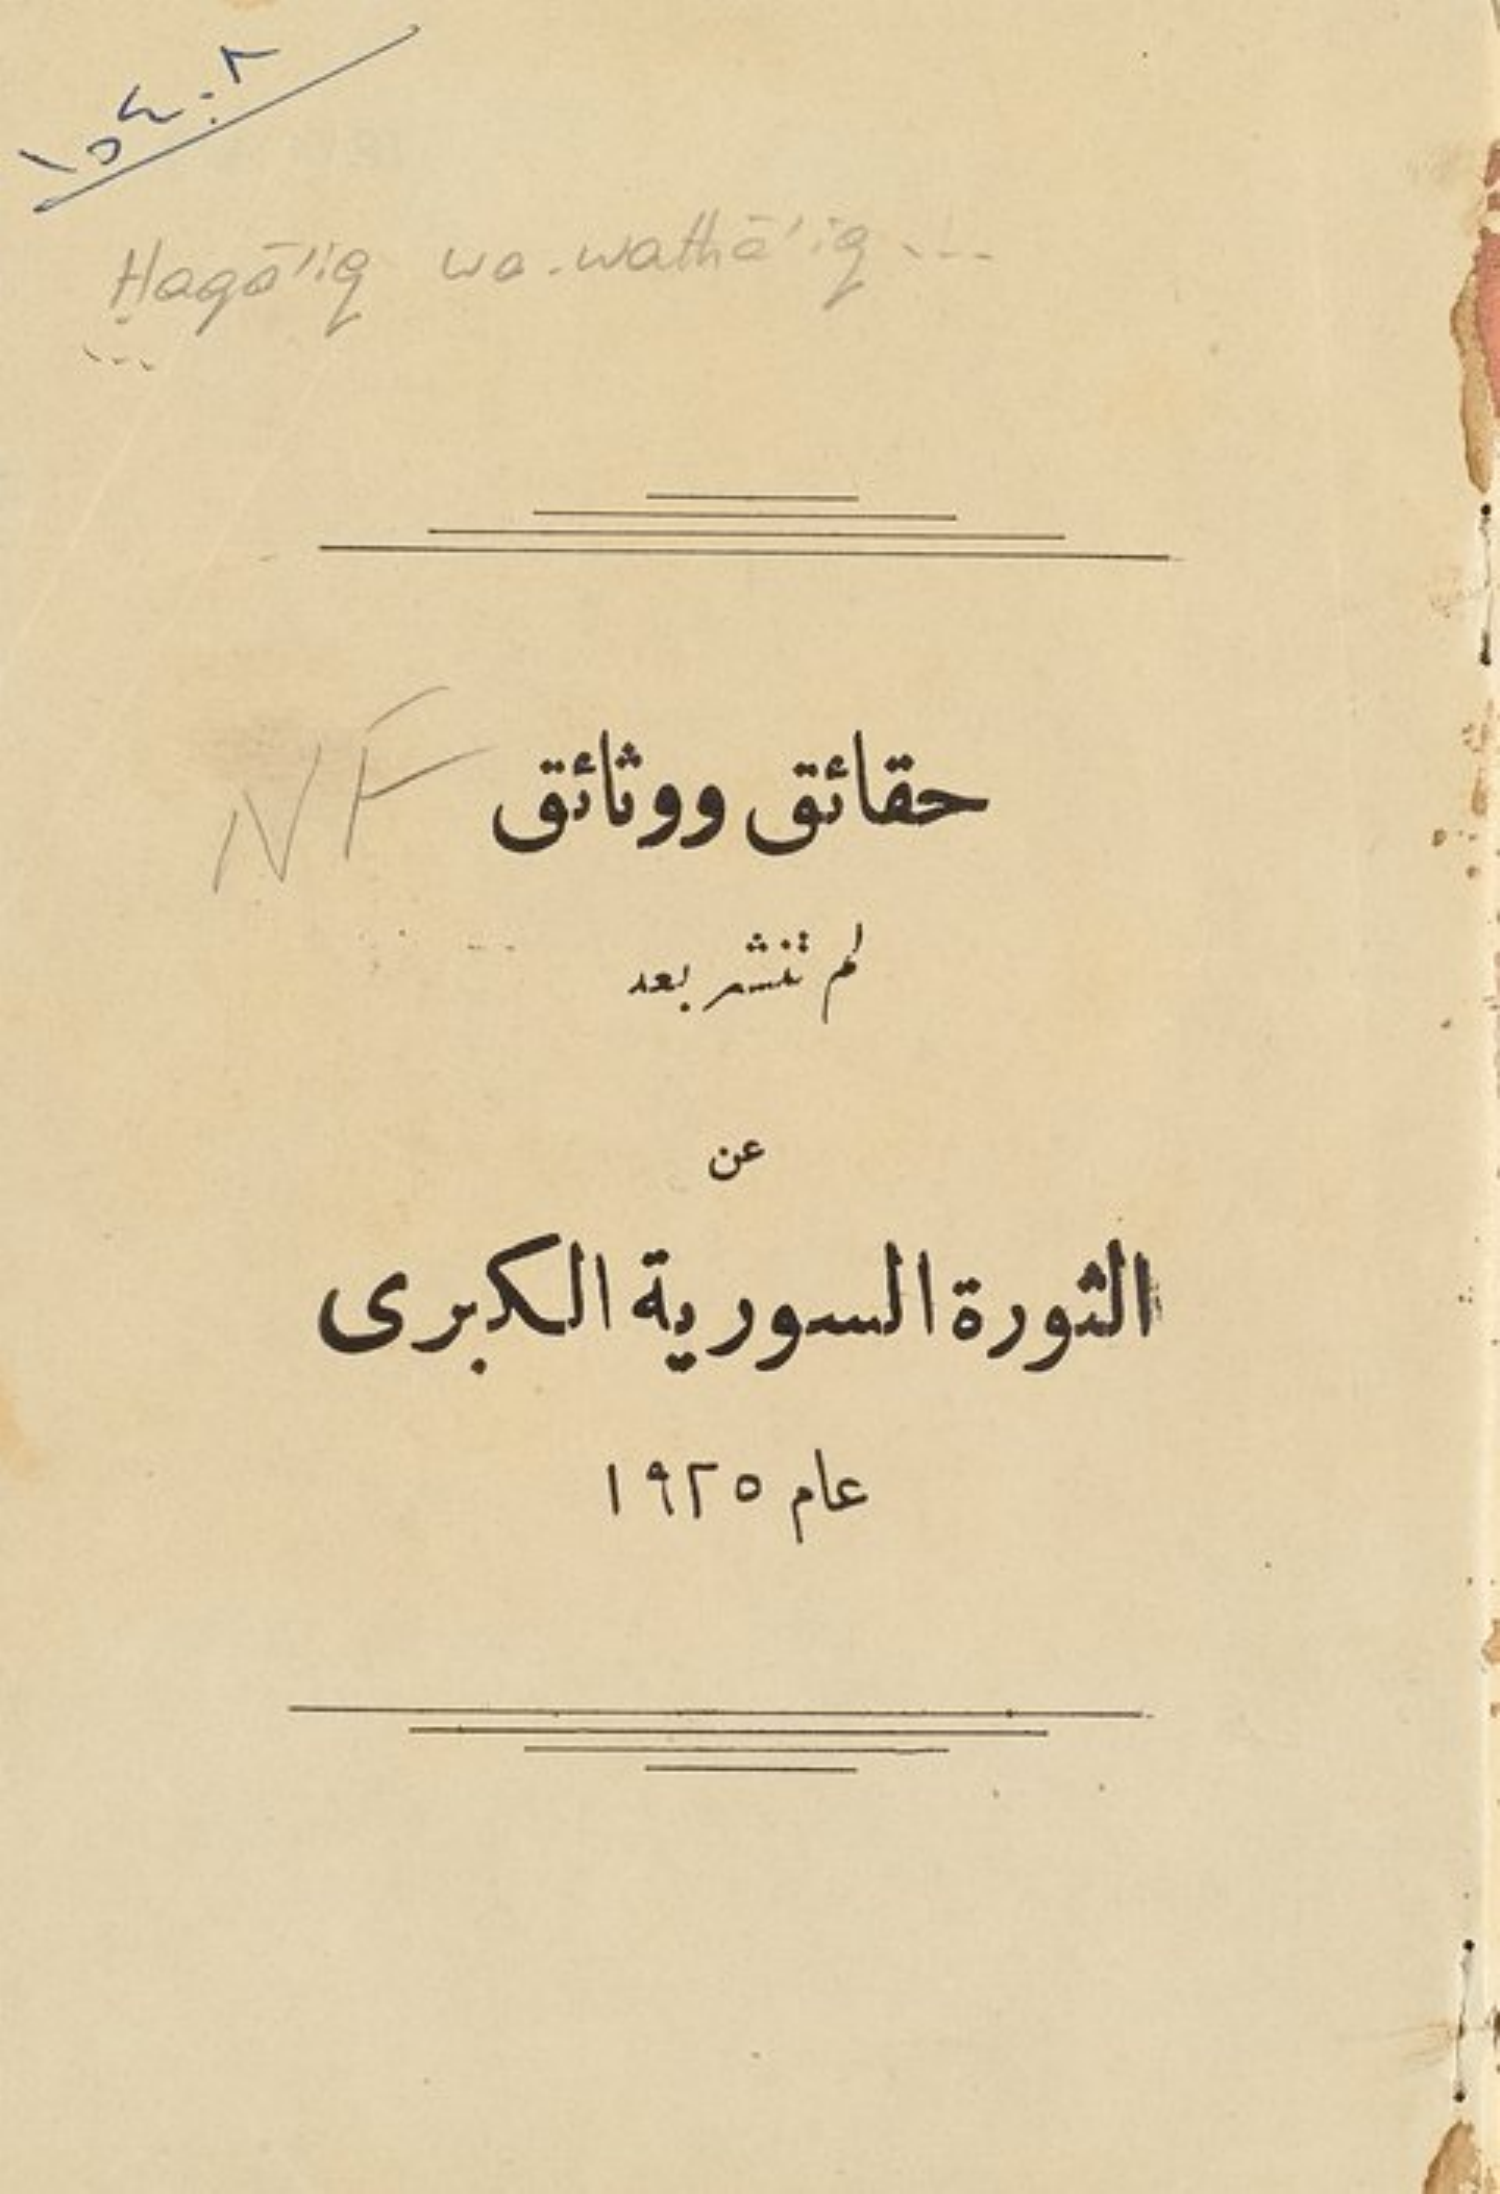 ١٥٤٠٨
Ḥaqā'iq wa-wathā'iq...
NF
حقائق ووثائق
لم تنشر بعد
عن
الثورة السورية الكبرى
عام ١٩٢٥